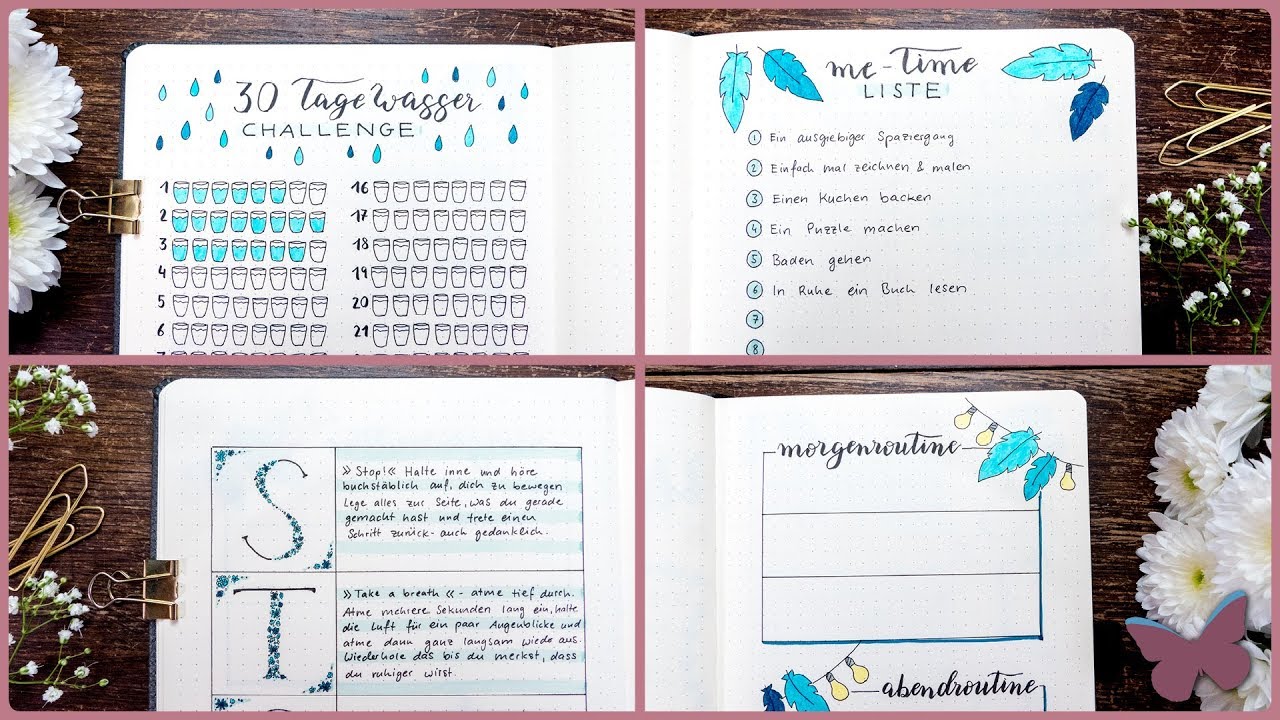 30 Tage Wasser
CHALLENGE
1 16
2 17
3 18
4 19
5 20
6 21
me-Time
LISTE
1 Ein ausgiebiger Spaziergang
2 Einfach mal zeichnen & malen
3 Einen Kuchen backen
4 Ein Puzzle machen
5 Baden gehen
6 In Ruhe ein Buch lesen
7
8
S
»Stop!« Halte inne und höre
buchstäblich auf, dich zu bewegen
Lege alles zur Seite, was du gerade
gemacht hast und trete einen
Schritt zurück auch gedanklich.
T
»Take a breath« - atme tief durch.
Atme mehrere Sekunden lang ein, halte
die Luft ein paar Augenblicke und
atme dann ganz langsam wieder aus.
Wiederhole das bis du merkst, dass
du ruhiger wirst
morgenroutine
abendroutine